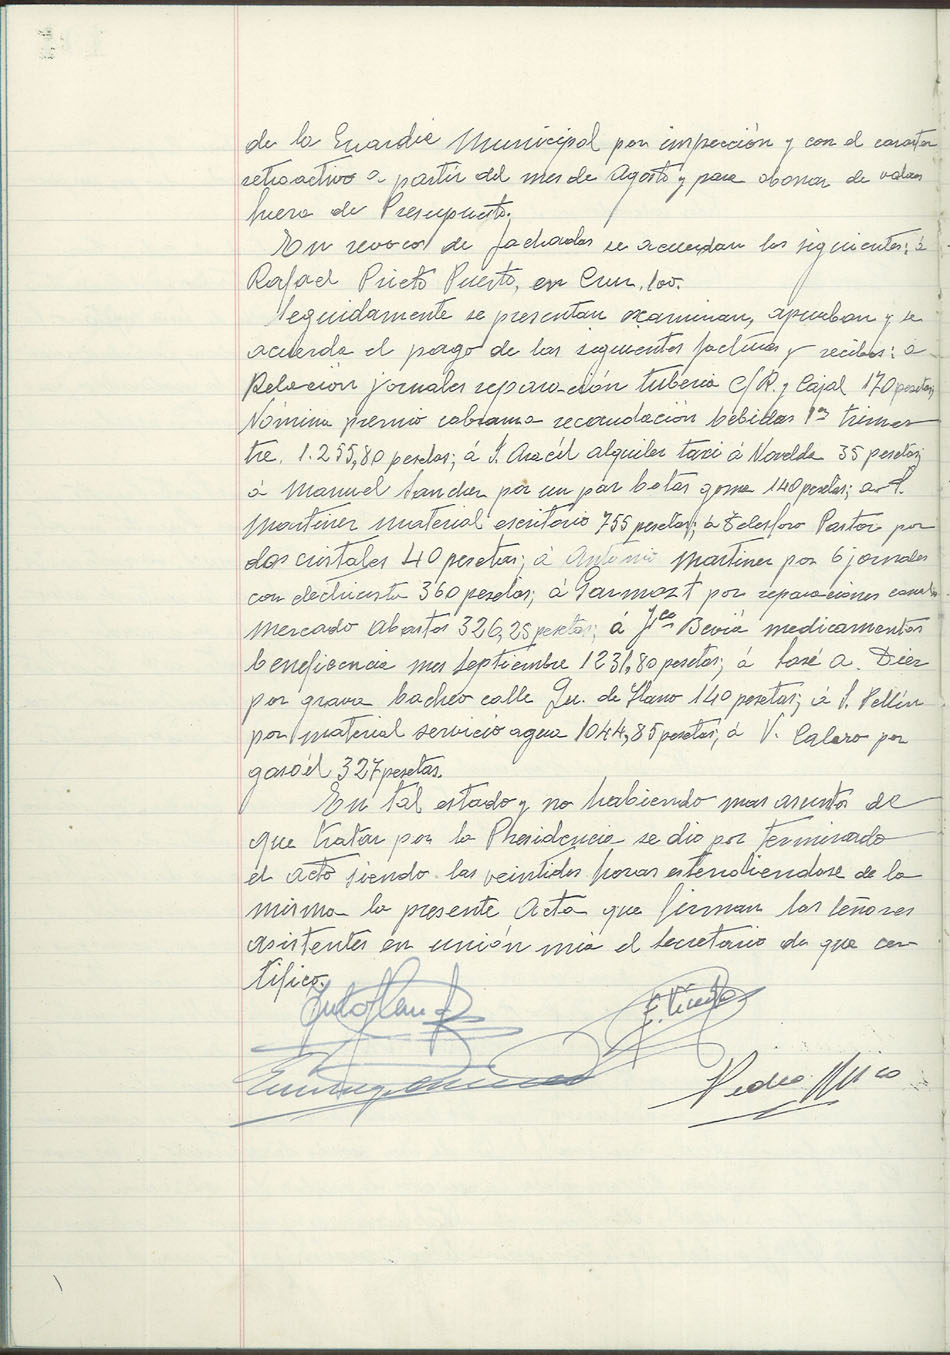 de la Guardia Municipal por inspección y con el caracter
retroactivo a partir del mes de Agosto y para abonar de valores
fuera de Presupuesto.
En revoco de fachadas se acuerdan los siguientes: á
Rafael Prieto Puerto, en Cruz, 100.
Seguidamente se presentan examinan, aprueban y se
acuerda el pago de las siguientes facturas y recibos: a
Relación jornales reparación tuberia C/R. y Cajal 170 pesetas,
Nómina premio cobranza recaudación bebidas 1er trimes
tre. 1.255,80 pesetas; á J. Aracil alquiler taxi á Novelda 35 pesetas;
á Manuel Sanchez por un par botas goma 140 pesetas; a
Martinez material escritorio 755 pesetas; á Telesforo Pastor por
dos cristales 40 pesetas; á Antonio Martinez por 6 jornales
con electricista 360 pesetas; á Garmozt por reparaciones
mercado Abastos 326,25 pesetas; á Fco Beviá medicamentos
beneficencia mes Septiembre 1231,80 pesetas; á José A. Diez
por grava bacheo calle Qu. de Llano 140 pesetas; á Pellín
por material servicio agua 1044,85 pesetas, á V. Calero por
gasoil 327 pesetas.
En tal estado y no habiendo mas asuntos de
que tratar por la Presidencia se dio por terminado
el acto siendo las veintidos horas estendiendose de la
misma la presente Acta que firman los señores
asistentes en unión mia el Secretario de que cer-
tifico.
Pedro Mico